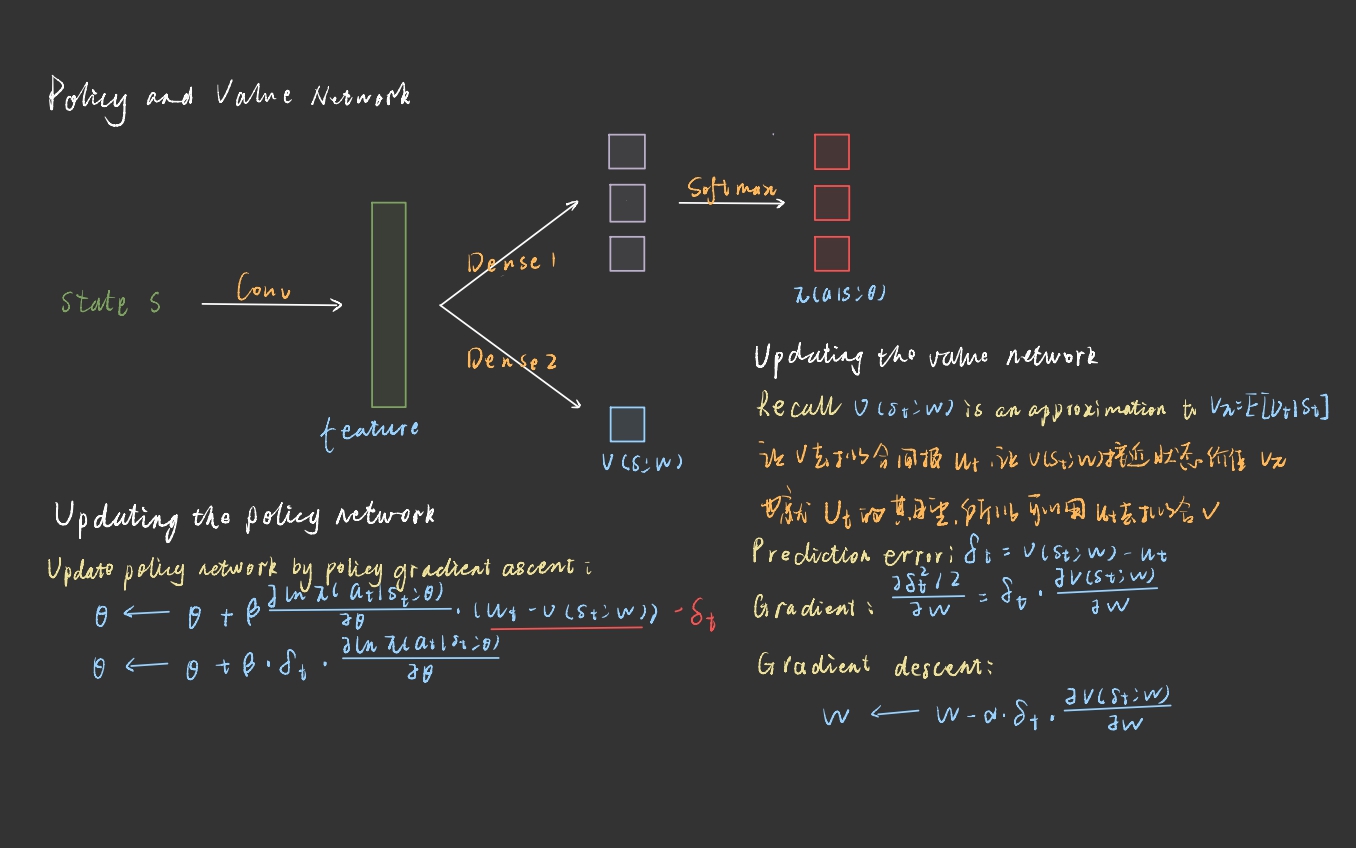 Policy and Value Network
Softmax
Dense 1
State S
Conv
π(a|s;θ)
Dense 2
feature
V(s;w)
Updating the policy network
Update policy network by policy gradient ascent:
θ ← θ + β ∂ln π(a_t|s_t;θ)/∂θ · (u_t - v(s_t;w)) - δ_t
θ ← θ + β · δ_t · ∂ln π(a_t|s_t;θ)/∂θ
Updating the value network
Recall v(s_t;w) is an approximation to V_π=E[U_t|s_t]
让 V去拟合回报 u_t,让 v(s_t;w)接近状态价值 V_π
也就 U_t 的期望,所以可以用 u_t去拟合 v
Prediction error: δ_t = v(s_t;w) - u_t
Gradient: ∂δ_t²/2 / ∂w = δ_t · ∂v(s_t;w)/∂w
Gradient descent:
w ← w - α · δ_t · ∂v(s_t;w)/∂w